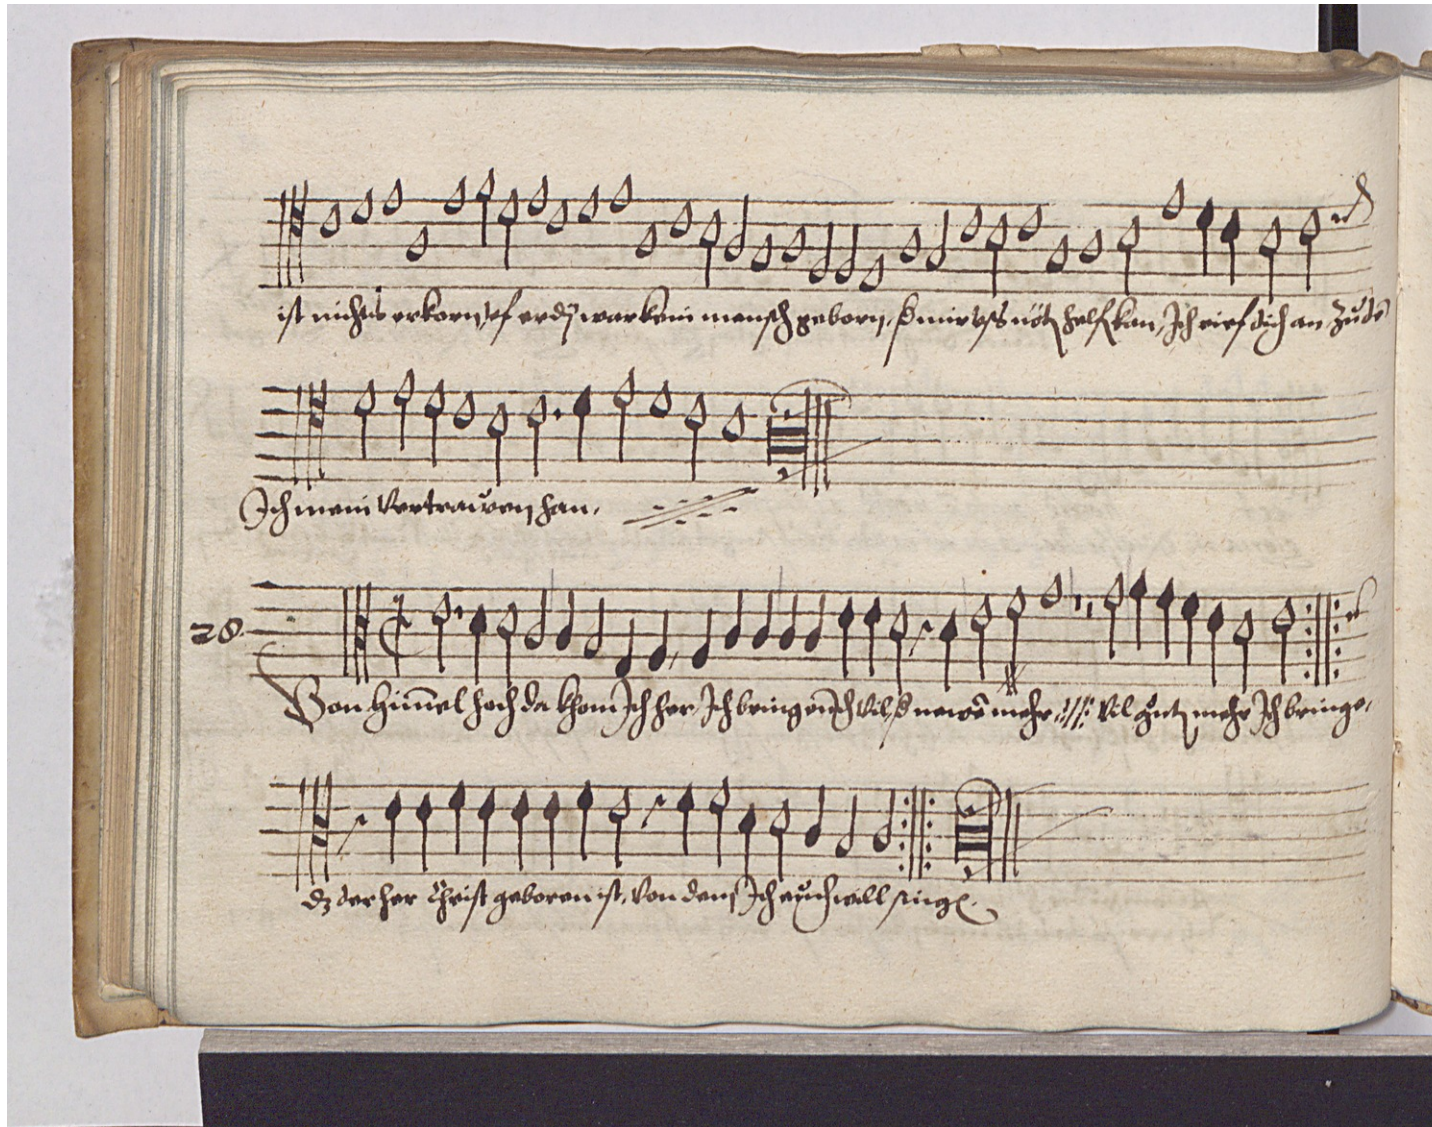 ist nichts erkorn, vf erdẏ war kein mensch geborn, d mir vß nöt helf kan, Ich rief dich an zů dē
Ich mein vertrauwen han.
28.
Von Himel hoch da khom Ich her, Ich bring eüch vil d newē mehr, vil gut mehr Ich bringe,
dz der her Christ geboren ist, von dem Ich eüch will singē.